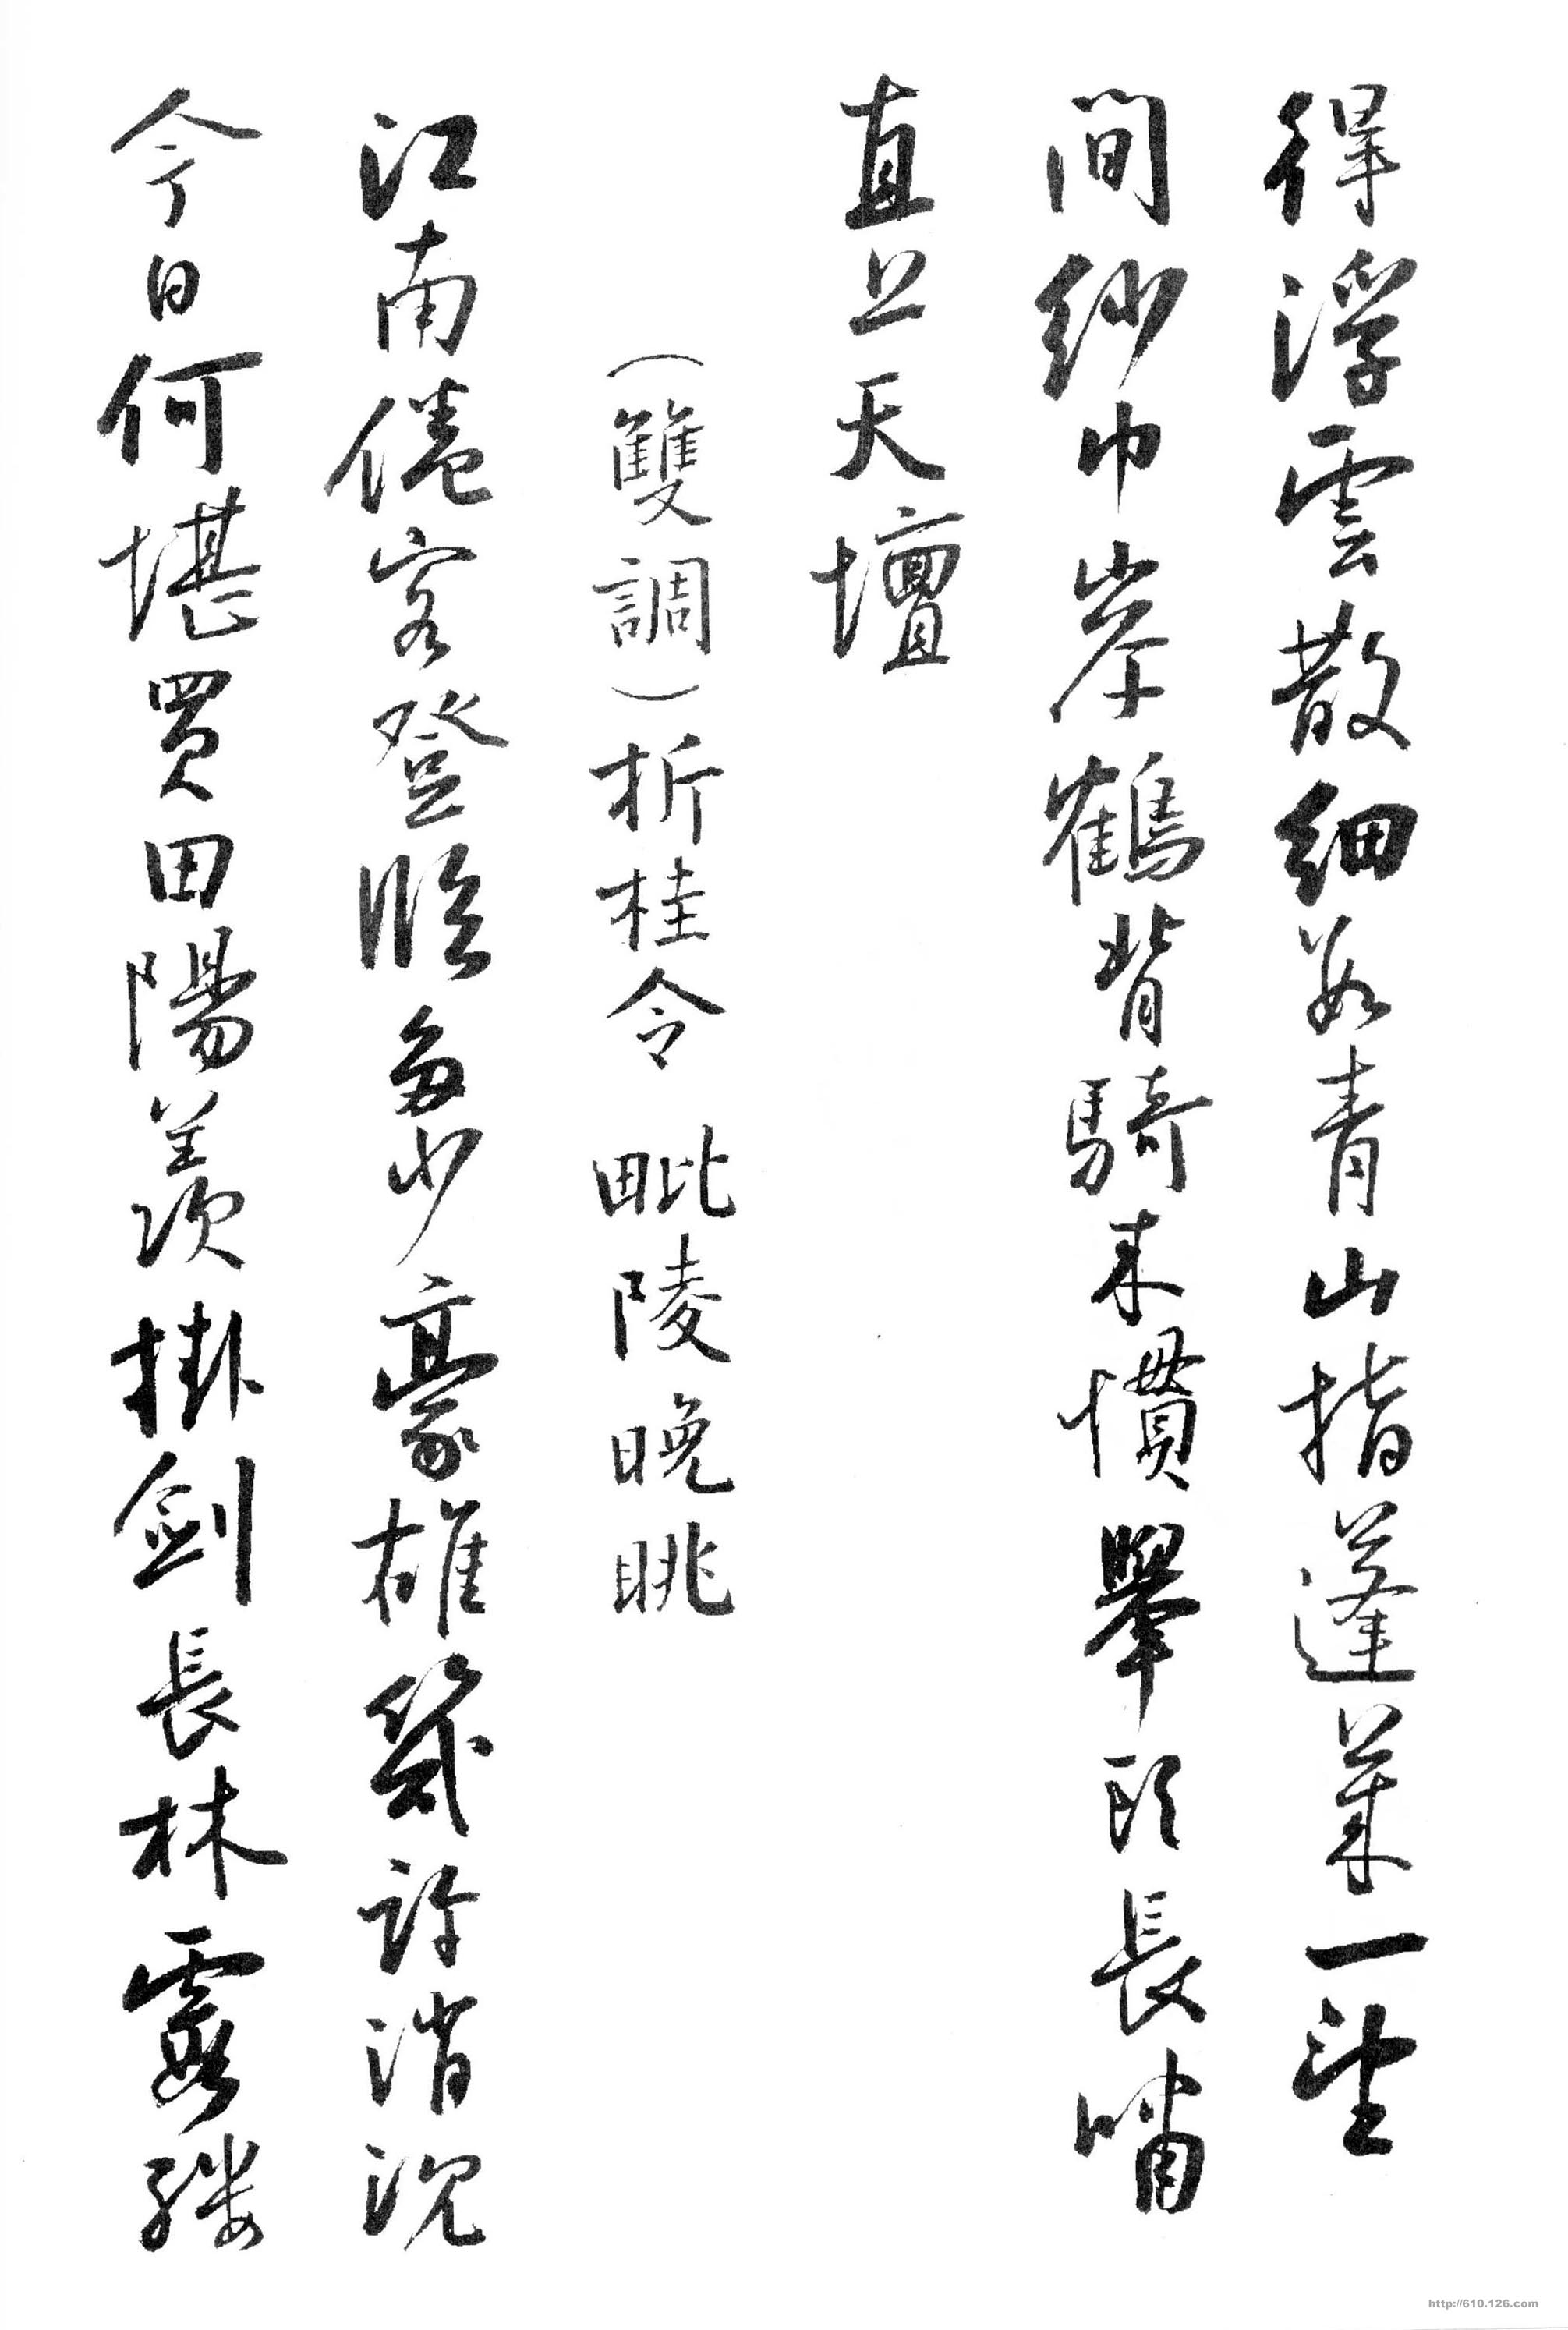 得浮雲散細數青山指蓬萊一望
間紗巾岸鶴背騎來慣舉頭長嘯
直上天壇
（雙調）折桂令 毗陵晚眺
江南倦客登臨多少豪雄幾許消沉
今日何堪買田陽羨掛劍長林霞縷
http://610.126.com